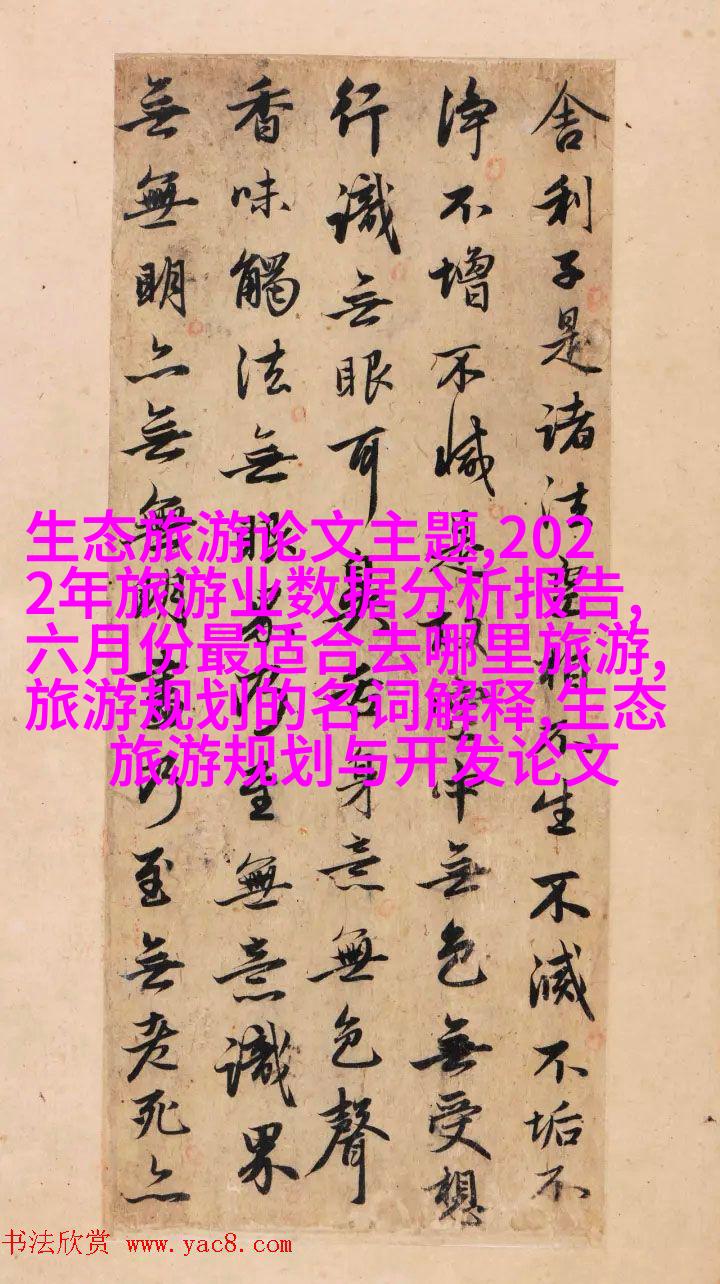 舍利子是諸法空相不生不滅不垢不
淨不增不減是故空中無色無受想
行識无眼耳鼻舌身意無色聲
香味觸法無眼界乃至無意識界
無無明亦無無明盡乃至無老死亦
生态旅游论文主题,202
2年旅游业数据分析报告,
六月份最适合去哪里旅游,
旅游规划的名词解释,生态
旅游规划与开发论文
书法欣赏 www.yac8.com